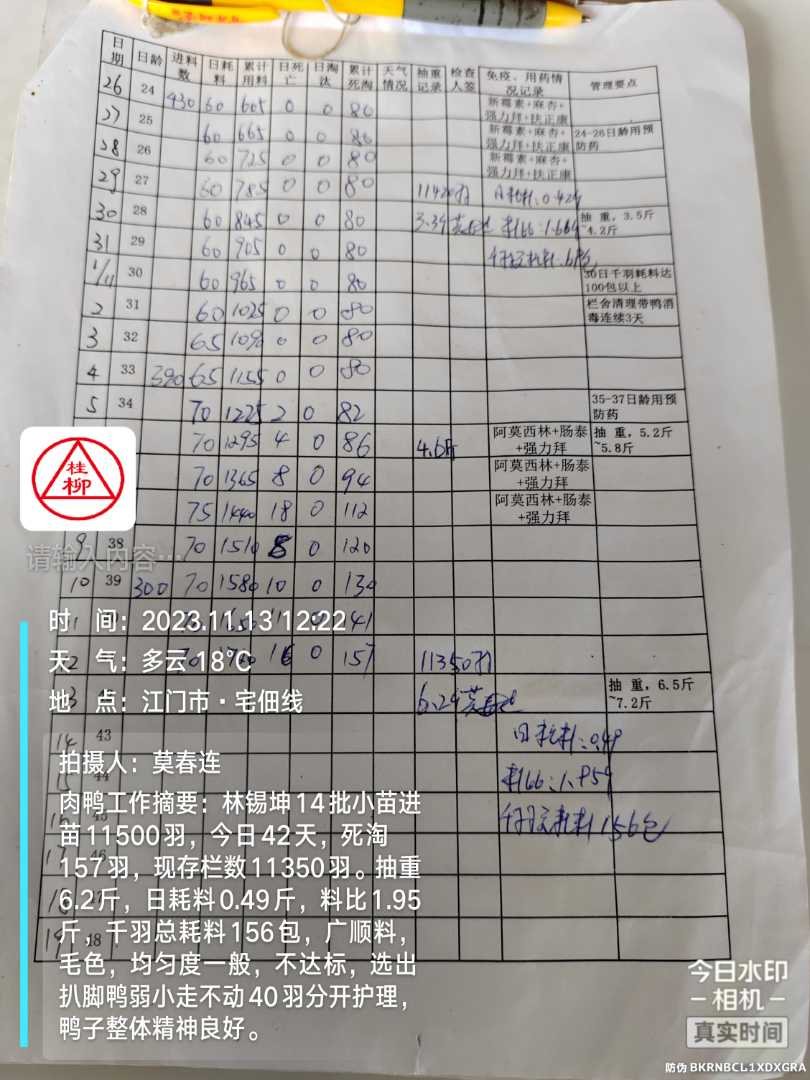 日期 日龄 进料数 日耗料 累计用料 日死亡 日淘汰 累计死淘 天气情况 抽重记录 检查人签 免疫、用药情况记录 管理要点
26 24 430 60 605 0 0 80 新霉素+麻杏+强力拜+扶正康
27 25 60 665 0 0 80 新霉素+麻杏+强力拜+扶正康 24-26日龄用预防药
28 26 60 725 0 0 80 新霉素+麻杏+强力拜+扶正康
29 27 60 785 0 0 80 11420羽 日耗料:0.42斤
30 28 60 845 0 0 80 3.3斤 料比:1.66 抽重,3.5斤~4.2斤
31 29 60 905 0 0 80
1/11 30 60 965 0 0 80 30日千羽耗料达100包以上
2 31 60 1025 0 0 80 栏舍清理带鸭消毒连续3天
3 32 65 1090 0 0 80
4 33 390 65 1155 0 0 80
5 34 70 1225 2 0 82 35-37日龄用预防药
70 1295 4 0 86 4.6斤 阿莫西林+肠泰+强力拜 抽重,5.2斤~5.8斤
70 1365 8 0 94 阿莫西林+肠泰+强力拜
75 1440 18 0 112 阿莫西林+肠泰+强力拜
9 38 70 1510 8 0 120
10 39 300 70 1580 10 0 130
0 141
0 157 11350羽
3 6.2斤 抽重,6.5斤~7.2斤
14 43 日耗料:0.49
44 料比:1.95斤
千羽耗料156包
桂柳
请输入内容…
时 间:2023.11.13 12:22
天 气:多云 18℃
地 点:江门市·宅佃线
拍摄人:莫春连
肉鸭工作摘要:林锡坤14批小苗进
苗11500羽,今日42天,死淘
157羽,现存栏数11350羽。抽重
6.2斤,日耗料0.49斤,料比1.95
斤,千羽总耗料156包,广顺料,
毛色,均匀度一般,不达标,选出
扒脚鸭弱小走不动40羽分开护理,
鸭子整体精神良好。
今日水印
-相机-
真实时间
防伪 BKRNBCL1XDXGRA